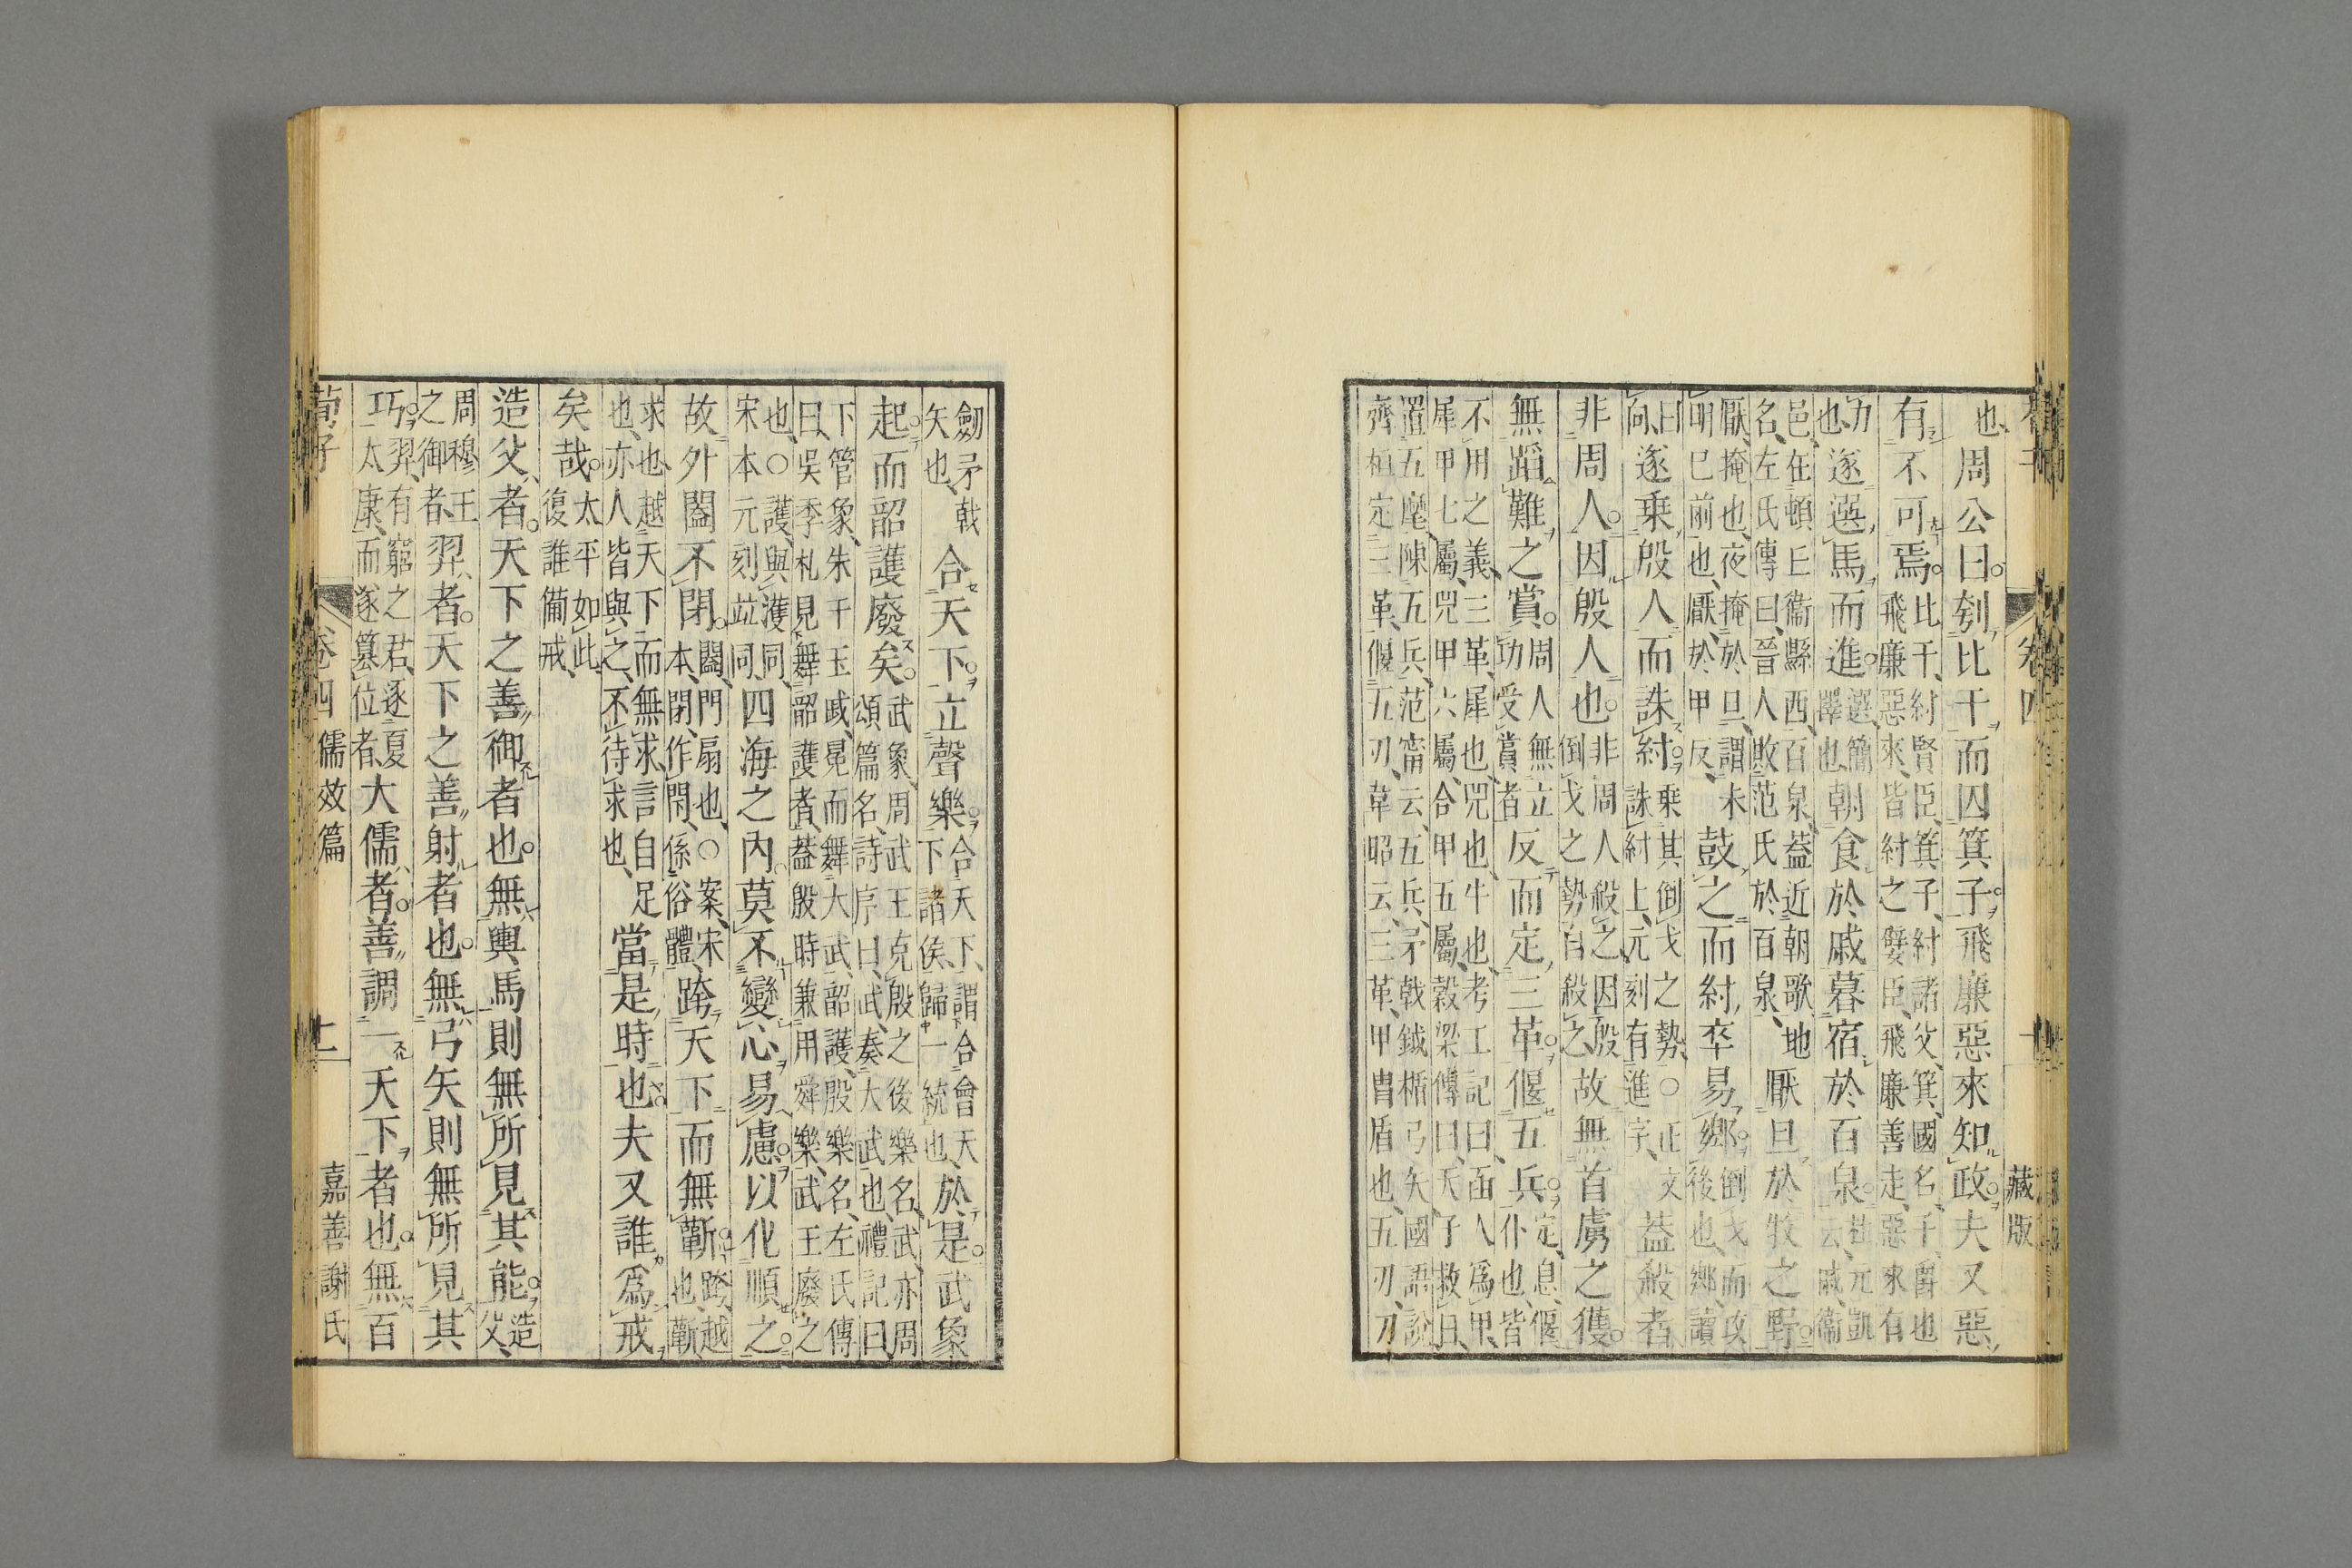 藏版
也周公曰刳比干而囚箕子飛廉惡來知政夫又惡
有不可焉比干紂賢臣箕子紂諸父箕國名子爵也飛廉惡來皆紂之嬖臣飛廉善走惡來有
力也遂選馬而進選簡擇也朝食於戚暮宿於百泉杜元凱云戚衞
邑在頓丘衞縣西百泉蓋近朝歌地名左氏傳曰晉人敗范氏於百泉厭旦於牧之野
厭掩也夜掩於旦謂未明已前也厭於甲反鼓之而紂卒易鄉倒戈而攻後也鄉讀
曰向遂乗殷人而誅紂乗其倒戈之勢○正文誅紂上元刻有進字蓋殺者
非周人因殷人也非周人殺之因殷倒戈之勢自殺之故無首虜之獲
無蹈難之賞周人無立功受賞者反而定三革偃五兵定息偃仆也皆
不用之義三革犀也兕也牛也考工記曰函人爲甲犀甲七屬兕甲六屬合甲五屬穀梁傳曰天子救日
置五麾陳五兵范甯云五兵矛戟鉞楯弓矢國語說齊桓定三革偃五刃韋昭云三革甲冑盾也五刃刀
劒矛戟矢也合天下立聲樂合天下謂合會天下諸侯歸一統也於是武象
起而韶護廢矣武象周武王克殷之後樂名武亦周頌篇名詩序曰武奏大武也禮記曰
下管象朱干玉戚冕而舞大武韶護殷樂名左氏傳曰吳季札見舞韶護者蓋殷時兼用舜樂武王廢之
也○護與濩同宋本元刻竝同四海之內莫不變心易慮以化順之
故外闔不閉闔門扇也○案宋本閉作閇係俗體跨天下而無蘄跨越也蘄
求也越天下而無求言自足也亦人皆與之不待求也當是時也夫又誰爲戒
矣哉太平如此復誰備戒
造父者天下之善御者也無輿馬則無所見其能造父
周穆王之御者羿者天下之善射者也無弓矢則無所見其
巧羿有窮之君逐夏工太康而遂篡位者大儒者善調一天下者也無百
荀子　卷四　儒效篇　十一　嘉善謝氏